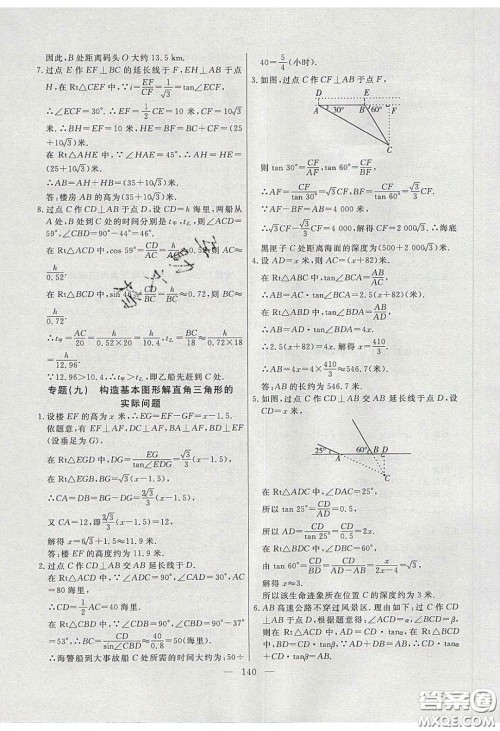 因此,B处距离码头O大约13.5 km.
7. 过点E作EF⊥BC的延长线于F,EH⊥AB于点
H,在Rt△CEF中,∵i=EF/CF=1/√3=tan∠ECF,
∴∠ECF=30°. ∴EF=1/2CE=10米,CF=10√3
米. ∴BH=EF=10米,HE=BF=BC+CF=
(25+10√3)米.
在Rt△AHE中,∵∠HAE=45°,∴AH=HE=
(25+10√3)米.
∴AB=AH+HB=(35+10√3)米.
答:楼房AB的高为(35+10√3)米.
8. 过点C作CD⊥AB于点D,设CD=h海里,两船从
A处、B处到C处的时间分别是t甲,t乙,则∠ACD=
59°,∠DCB=90°-44°=46°.
在Rt△ACD中,cos 59°=CD/AC=h/AC≈0.52,则AC≈
h/0.52.
在Rt△BCD中,sin CD/BC=h/BC≈0.72,则BC≈
h/0.72.
∴t甲=AC/20=h/(0.52×20)=h/10.4,t乙=BC/18=h/(0.72×18)
=h/12.96.
∵12.96>10.4,∴t甲>t乙,即乙船先赶到C处.
专题(九) 构造基本图形解直角三角形的
实际问题
1. 设楼EF的高为x米,∴EG=EF-GF=(x-1.5)米.
依题意,有EF⊥AF,DC⊥AF,BA⊥AF,BD⊥EF
(设垂足为G),
在Rt△EGD中,DG=EG/tan∠EDG=√3/3(x-1.5),
在Rt△EGB中,BG=√3(x-1.5),
∴CA=DB=BG-DG=2√3/3(x-1.5).
又CA=12,即2√3/3(x-1.5)=12,
解得x=6√3+1.5≈11.9米.
答:楼EF的高度约为11.9米.
2. 过点C作CD⊥AB交AB延长线于D.
在Rt△ACD中,∵∠ADC=90°,∠CAD=30°,AC
=80海里,
∴CD=1/2AC=40海里.
在Rt△CBD中,∵∠CDB=90°,∠CBD=90°-37°
=53°,∴BC=CD/sin∠CBD≈40/0.8=50(海里).
∴海警船到大事故船C处所需的时间大约为:50÷
40=5/4(小时).
3. 如图,过点C作CF⊥AB于点F,
D E
A 30° B 60° F
C
则tan 30°=CF/AF,tan 60°=CF/BF.
∴AF=CF/tan 30°=√3CF,BF=CF/tan 60°=√3/3CF.
∵AF-BF=AB=4 000米,
∴√3CF-√3/3CF=4 000,解得CF=2 000√3,∴海底
黑匣子C处距离海面的深度为(500+2 000√3)米.
4. 设AD=x米,则AC=(x+82)米.
在Rt△ABC中,tan∠BCA=AB/AC,
∴AB=AC·tan∠BCA=2.5(x+82)米.
在Rt△ABD中,tan∠BDA=AB/AD,
∴AB=AD·tan∠BDA=4x.
∴2.5(x+82)=4x. 解得x=410/3.
∴AB=4x=4×410/3≈546.7米.
答:AB的长约为546.7米.
5. 如图,过点C作CD⊥AB交AB延长线于点D,
25° A 60° B D
C
在Rt△ADC中,∠DAC=25°,
所以tan 25°=CD/AD=0.5,
所以AD=CD/0.5=2x.
在Rt△BDC中,∠DBC=60°,
由tan 60°=CD/BD=CD/(AD-AB)=x/(2x-4)=√3,
解得x≈3.
所以该生命迹象所在位置C的深度约为3米.
6. AB高速公路不穿过风景区. 理由如下:如图,过C作CD
⊥AB于点D,根据题意,得∠ACD=α,∠BCD=β.
在Rt△ACD中,AD=CD·tanα,在Rt△BCD中,BD=CD·tanβ,
∵AD+DB=AB,∴CD·tanα
+CD·tanβ=AB.
140
答案圈
MXQE.COM